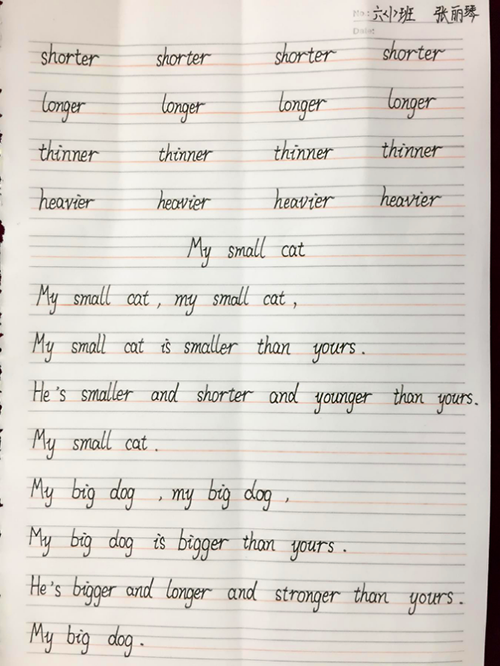 No: 六(小)班 张丽琴
Date:
shorter shorter shorter shorter
longer longer longer longer
thinner thinner thinner thinner
heavier heavier heavier heavier
My small cat
My small cat , my small cat ,
My small cat is smaller than yours .
He's smaller and shorter and younger than yours.
My small cat .
My big dog , my big dog ,
My big dog is bigger than yours .
He's bigger and longer and stronger than yours .
My big dog .